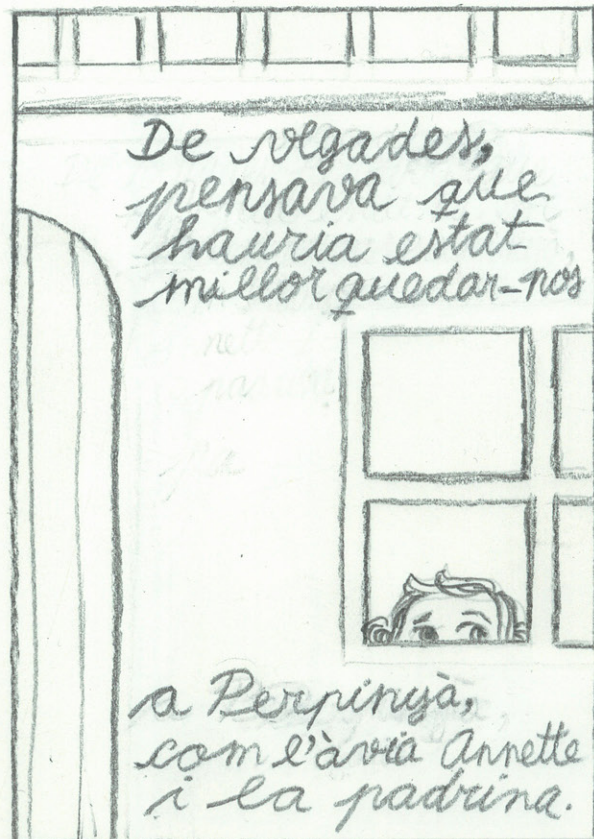 De vegades,
pensava que
hauria estat
millor quedar-nos
a Perpinyà,
com l'àvia Annette
i la padrina.